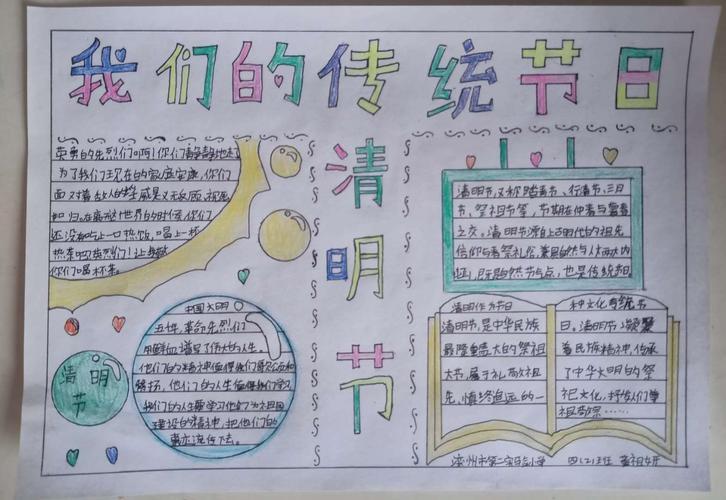 我们的传统节日
清明节
英勇的先烈们啊!你们静静地走了
为了我们现在的家庭安康,你们
面对着敌人的威是义无反顾,视死
如归。在离开世界的时候,你们
还没有吃上一口热饭,喝上一杯
热茶吧英烈们!让
你们喝杯茶。
清明节,又称踏青节、行清节、三月
节、祭祖节等,节期在仲春与暮春
之交。清明节源自上古时代的祖先
信仰与春祭礼俗,兼具自然与人文两大内
涵,既是自然节气点,也是传统节日
中国文明
五十年,革命先烈们
用鲜血谱写了伟大的人生。
他们的精神值得我们
扬,他们的人生值得我们学习
我们的人要学习他们为祖国
建设的精神,把他们的
事迹流传下去。
清明节
清明作为节日
清明节,是中华民族
最隆重盛大的祭祖
大节,属于礼敬祖
先、慎终追远的一
种文化传统节
日,清明节凝聚
着民族精神,传承
了中华文明的祭
祀文化,抒发人们尊
祖敬宗……
滦州市第二实验小学 四(2)班